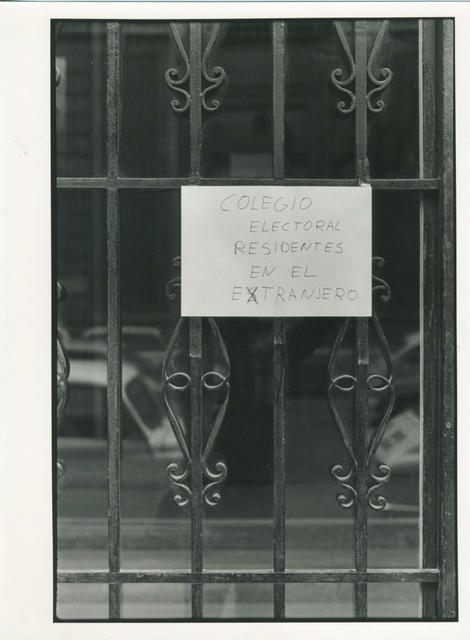 COLEGIO
ELECTORAL
RESIDENTES
EN EL
EXTRANJERO